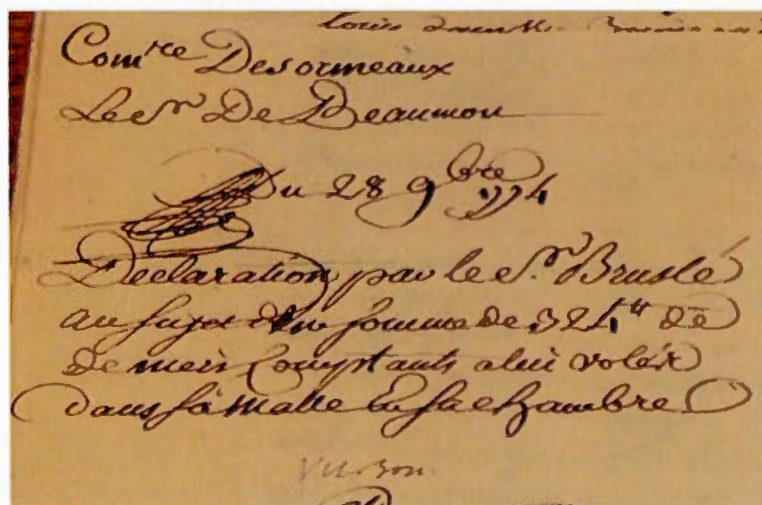 Com.re Desormeaux
Le Sr De Beaumon
Du 28 9bre 1774
Declaration par le Sr. Bruslé
au sujet d'un somme de 324tt de
deniers Comptants a lui volés
dans sa Malle en sa chambre
Vu. Bon.